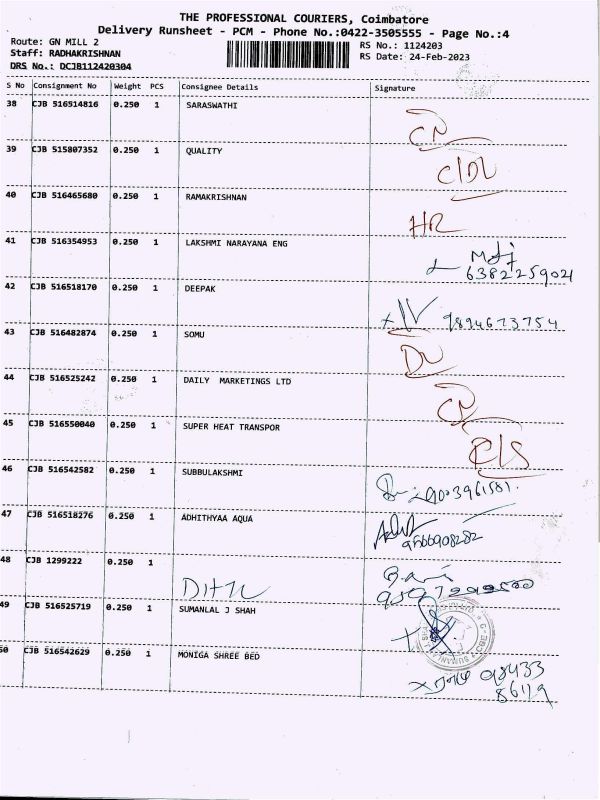 THE PROFESSIONAL COURIERS, Coimbatore
Delivery Runsheet - PCM - Phone No.:0422-3505555 - Page No.:4
Route: GN MILL 2
RS No.: 1124203
Staff: RADHAKRISHNAN
RS Date: 24-Feb-2023
DRS No.: DCJB112420304
S No Consignment No Weight PCS Consignee Details Signature
38 CJB 516514816 0.250 1 SARASWATHI
CN
39 CJB 515807352 0.250 1 QUALITY
C/DL
40 CJB 516465680 0.250 1 RAMAKRISHNAN
HR
41 CJB 516354953 0.250 1 LAKSHMI NARAYANA ENG
6382259021
42 CJB 516518170 0.250 1 DEEPAK
9894673754
43 CJB 516482874 0.250 1 SOMU
DL
44 CJB 516525242 0.250 1 DAILY MARKETINGS LTD
CN
45 CJB 516550040 0.250 1 SUPER HEAT TRANSPOR
46 CJB 516542582 0.250 1 SUBBULAKSHMI
9003961581
47 CJB 516518276 0.250 1 ADHITHYAA AQUA
9566908282
48 CJB 1299222 0.250 1
49 CJB 516525719 0.250 1 SUMANLAL J SHAH
50 CJB 516542629 0.250 1 MONIGA SHREE BED
98433
86119